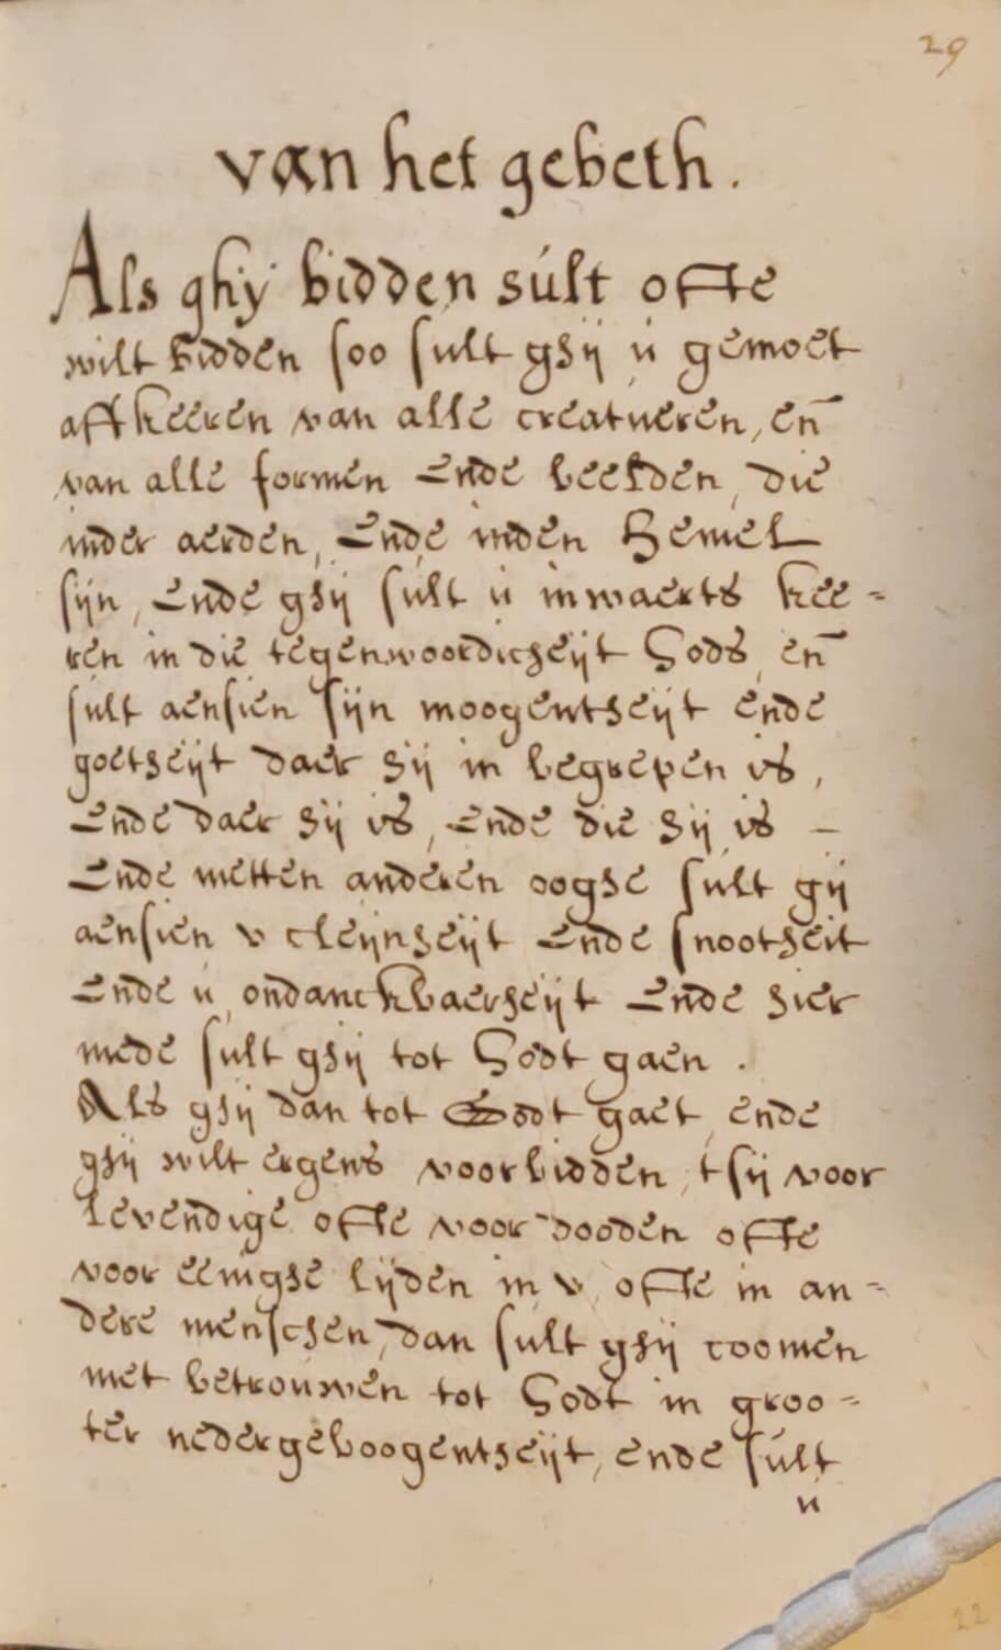 29
van het gebeth.
Als ghij bidden súlt ofte
wilt bidden soo sult ghij ú gemoet
aff keeren van alle creatueren, en̄
van alle formen Ende beelden, die
inder aerden, Ende inden Hemel
sijn, Ende ghij sult ú inwaerts kee=
ren in die tegenwoordicheijt Gods, en̄
sult aensien sijn moogentheijt ende
goetheijt daer hij in begrepen is,
Ende daer hij is, Ende die hij is –
Ende metten anderen ooghe sult gij
aensien v cleijnheijt Ende snootheit
Ende ú ondanckbaerheijt Ende hier
mede sult ghij tot Godt gaen.
Als ghij dan tot Godt gaet, ende
ghij wilt ergens voorbidden, t sij voor
levendige ofte voor dooden ofte
voor eenighe lijden in v, ofte in an=
dere menschen, dan sult ghij coomen
met betroúwen tot Godt in groo=
ter nedergeboogentheijt, ende súlt
ú
22